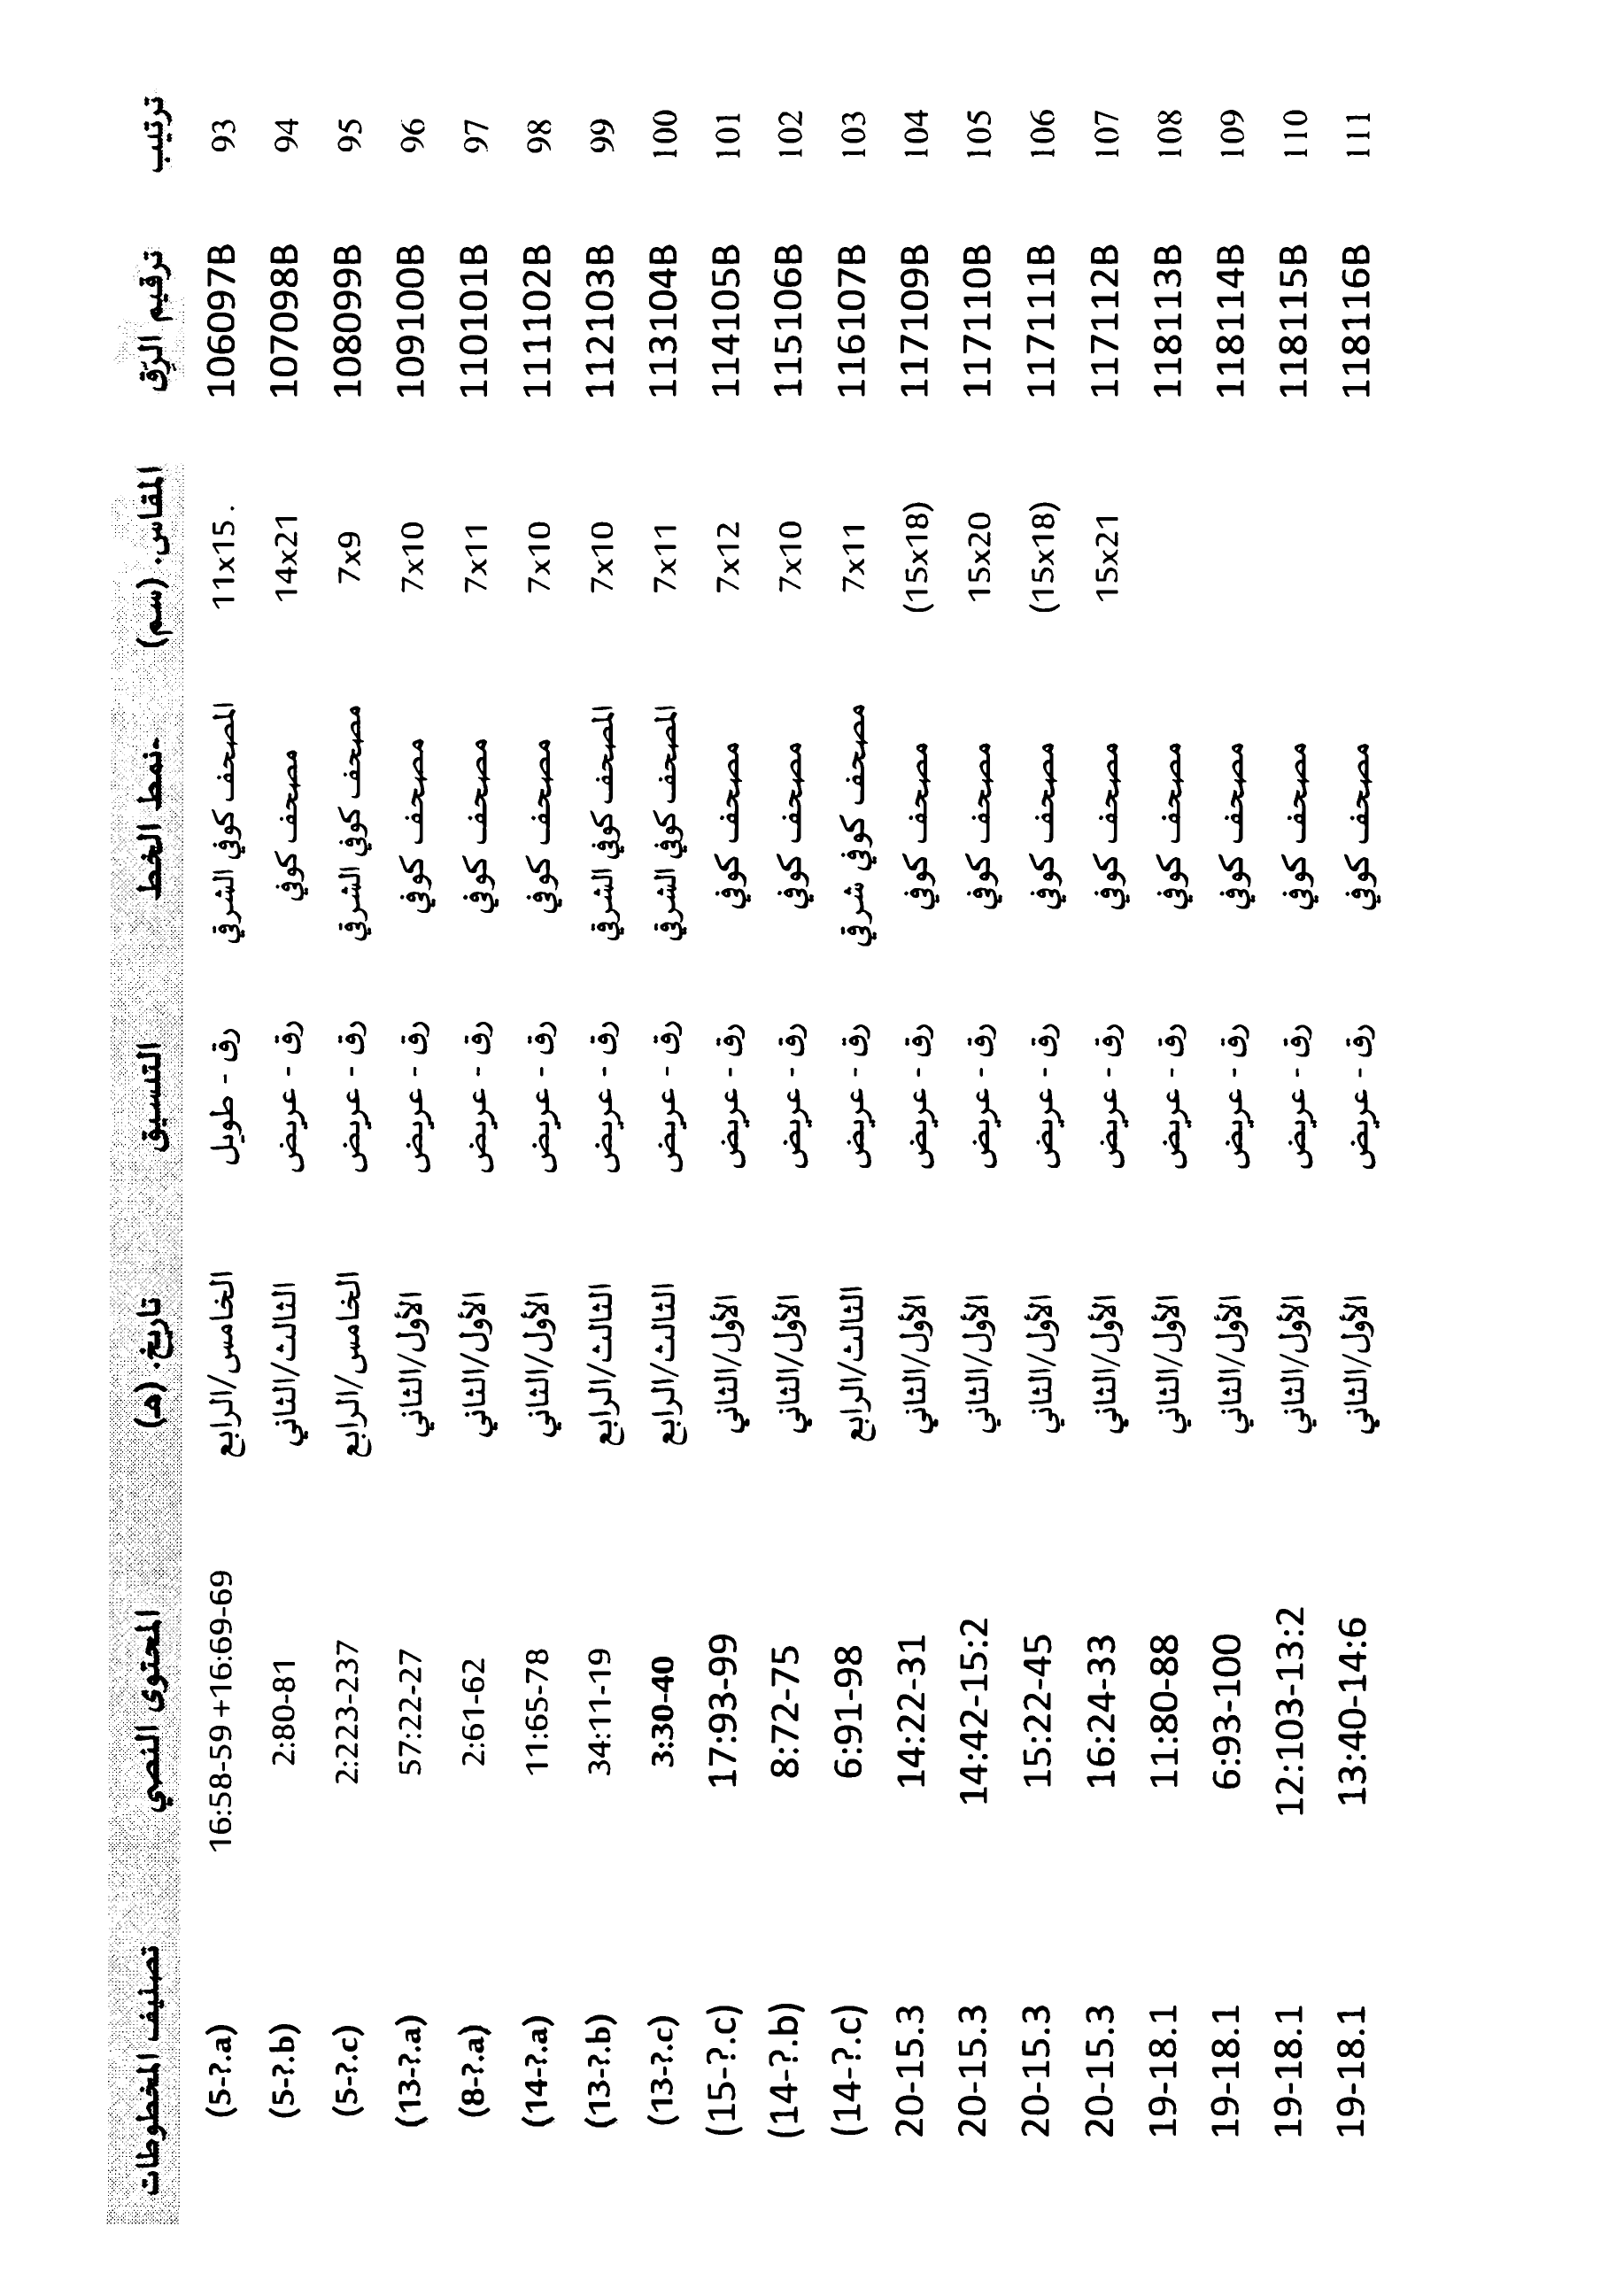 ترتيب ترقيم الرّق المقاس. (سم) -نمط الخط التنسيق تاريخ. (هـ) المحتوى النصي تصنيف المخطوطات
93 106097B 11x15. المصحف كوفي الشرقي رق - طويل الخامس/الرابع 16:58-59 +16:69-69 (5-?.a)
94 107098B 14x21 مصحف كوفي رق - عريض الثالث/الثاني 2:80-81 (5-?.b)
95 108099B 7x9 مصحف كوفي الشرقي رق - عريض الخامس/الرابع 2:223-237 (5-?.c)
96 109100B 7x10 مصحف كوفي رق - عريض الأول/الثاني 57:22-27 (13-?.a)
97 110101B 7x11 مصحف كوفي رق - عريض الأول/الثاني 2:61-62 (8-?.a)
98 111102B 7x10 مصحف كوفي رق - عريض الأول/الثاني 11:65-78 (14-?.a)
99 112103B 7x10 المصحف كوفي الشرقي رق - عريض الثالث/الرابع 34:11-19 (13-?.b)
100 113104B 7x11 المصحف كوفي الشرقي رق - عريض الثالث/الرابع 3:30-40 (13-?.c)
101 114105B 7x12 مصحف كوفي رق - عريض الأول/الثاني 17:93-99 (15-?.c)
102 115106B 7x10 مصحف كوفي رق - عريض الأول/الثاني 8:72-75 (14-?.b)
103 116107B 7x11 مصحف كوفي شرقي رق - عريض الثالث/الرابع 6:91-98 (14-?.c)
104 117109B (15x18) مصحف كوفي رق - عريض الأول/الثاني 14:22-31 20-15.3
105 117110B 15x20 مصحف كوفي رق - عريض الأول/الثاني 14:42-15:2 20-15.3
106 117111B (15x18) مصحف كوفي رق - عريض الأول/الثاني 15:22-45 20-15.3
107 117112B 15x21 مصحف كوفي رق - عريض الأول/الثاني 16:24-33 20-15.3
108 118113B مصحف كوفي رق - عريض الأول/الثاني 11:80-88 19-18.1
109 118114B مصحف كوفي رق - عريض الأول/الثاني 6:93-100 19-18.1
110 118115B مصحف كوفي رق - عريض الأول/الثاني 12:103-13:2 19-18.1
111 118116B مصحف كوفي رق - عريض الأول/الثاني 13:40-14:6 19-18.1